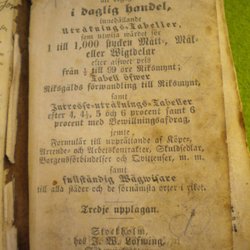 i daglig handel,
innehållande
Uträknings-Tabeller,
som utwisa wärdet för
1 till 1,000 stycken Mått-, Mål-
eller Wigtdelar
efter alfwet pris
från ¼ till 99 öre Riksmynt;
Tabell öfwer
Riksgälds förwandling till Riksmynt,
samt
Intresse-uträknings-Tabeller
efter 4, 4½, 5 och 6 procent samt 6
procent med Bewillningsafdrag,
jemte
Formulär till upprättande af Köpe-,
Arrende- och Arbetskontrakter, Skuldsedlar,
Borgensförbindelser och Qwittenser, m. m.
samt
fullständig Wägwisare
till alla städer och de förnämsta orter i riket.
Tredje upplagan.
Stockholm,
hos J. W. Löfwing,